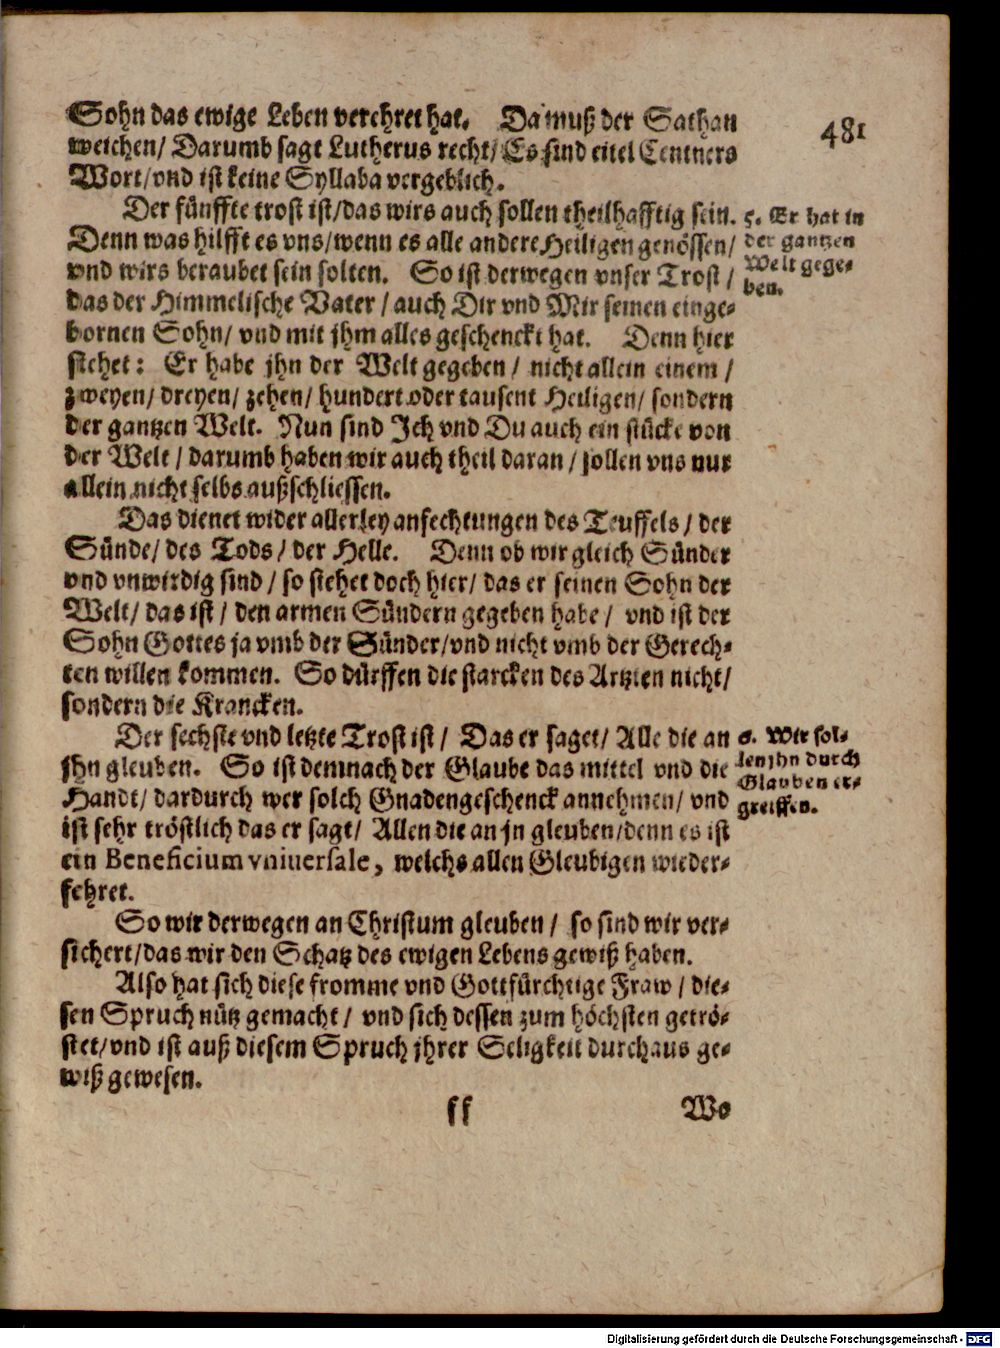 481
Sohn das ewige Leben verehret hat. Da muß der Sathan
weichen/ Darumb sagt Lutherus recht/ Es sind eitel Centners
Wort/vnd ist keine Syllaba vergeblich.
Der fünffte trost ist/das wirs auch sollen theilhafftig sein.
Denn was hilfft es vns/wenn es alle andere Heiligen genössen/
vnd wirs beraubet sein solten. So ist derwegen vnser Trost/
das der Himmelische Vater/ auch Dir vnd Mir seinen einge-
bornen Sohn/ vnd mit jhm alles geschenckt hat. Denn hier
stehet: Er habe jhn der Welt gegeben/ nicht allein einem/
zweyen/ dreyen/ zehen/ hundert oder tausent Heiligen/ sondern
der gantzen Welt. Nun sind Ich vnd Du auch ein stücke von
der Welt/ darumb haben wir auch theil daran/ sollen vns nur
allein nicht selbs außschliessen.
5. Er hat in
der gantzen
Welt gege-
ben.
Das dienet wider allerley anfechtungen des Teuffels/ der
Sünde/ des Tods/ der Helle. Denn ob wir gleich Sünder
vnd vnwirdig sind/ so stehet doch hier/ das er seinen Sohn der
Welt/ das ist/ den armen Sündern gegeben habe/ vnd ist der
Sohn Gottes ja vmb der Sünder/vnd nicht vmb der Gerech-
ten willen kommen. So dürffen die starcken des Artzten nicht/
sondern die Krancken.
Der sechste vnd letzte Trost ist/ Das er saget/ Alle die an
jhn gleuben. So ist demnach der Glaube das mittel vnd die
Handt/ dardurch wer solch Gnadengeschenck annehmen/ vnd
ist sehr tröstlich das er sagt/ Allen die an jn gleuben/denn es ist
ein Beneficium vniuersale, welchs allen Gleubigen wieder-
fehret.
6. Wir sol-
len jhn durch
Glauben er-
greiffen.
So wir derwegen an Christum gleuben/ so sind wir ver-
sichert/das wir den Schatz des ewigen Lebens gewiß haben.
Also hat sich diese fromme vnd Gottfürchtige Fraw/ die-
sen Spruch nütz gemacht/ vnd sich dessen zum höchsten getrö-
stet/vnd ist auß diesem Spruch jhrer Seligkeit durchaus ge-
wiß gewesen.
ff Wo
Digitalisierung gefördert durch die Deutsche Forschungsgemeinschaft - DFG